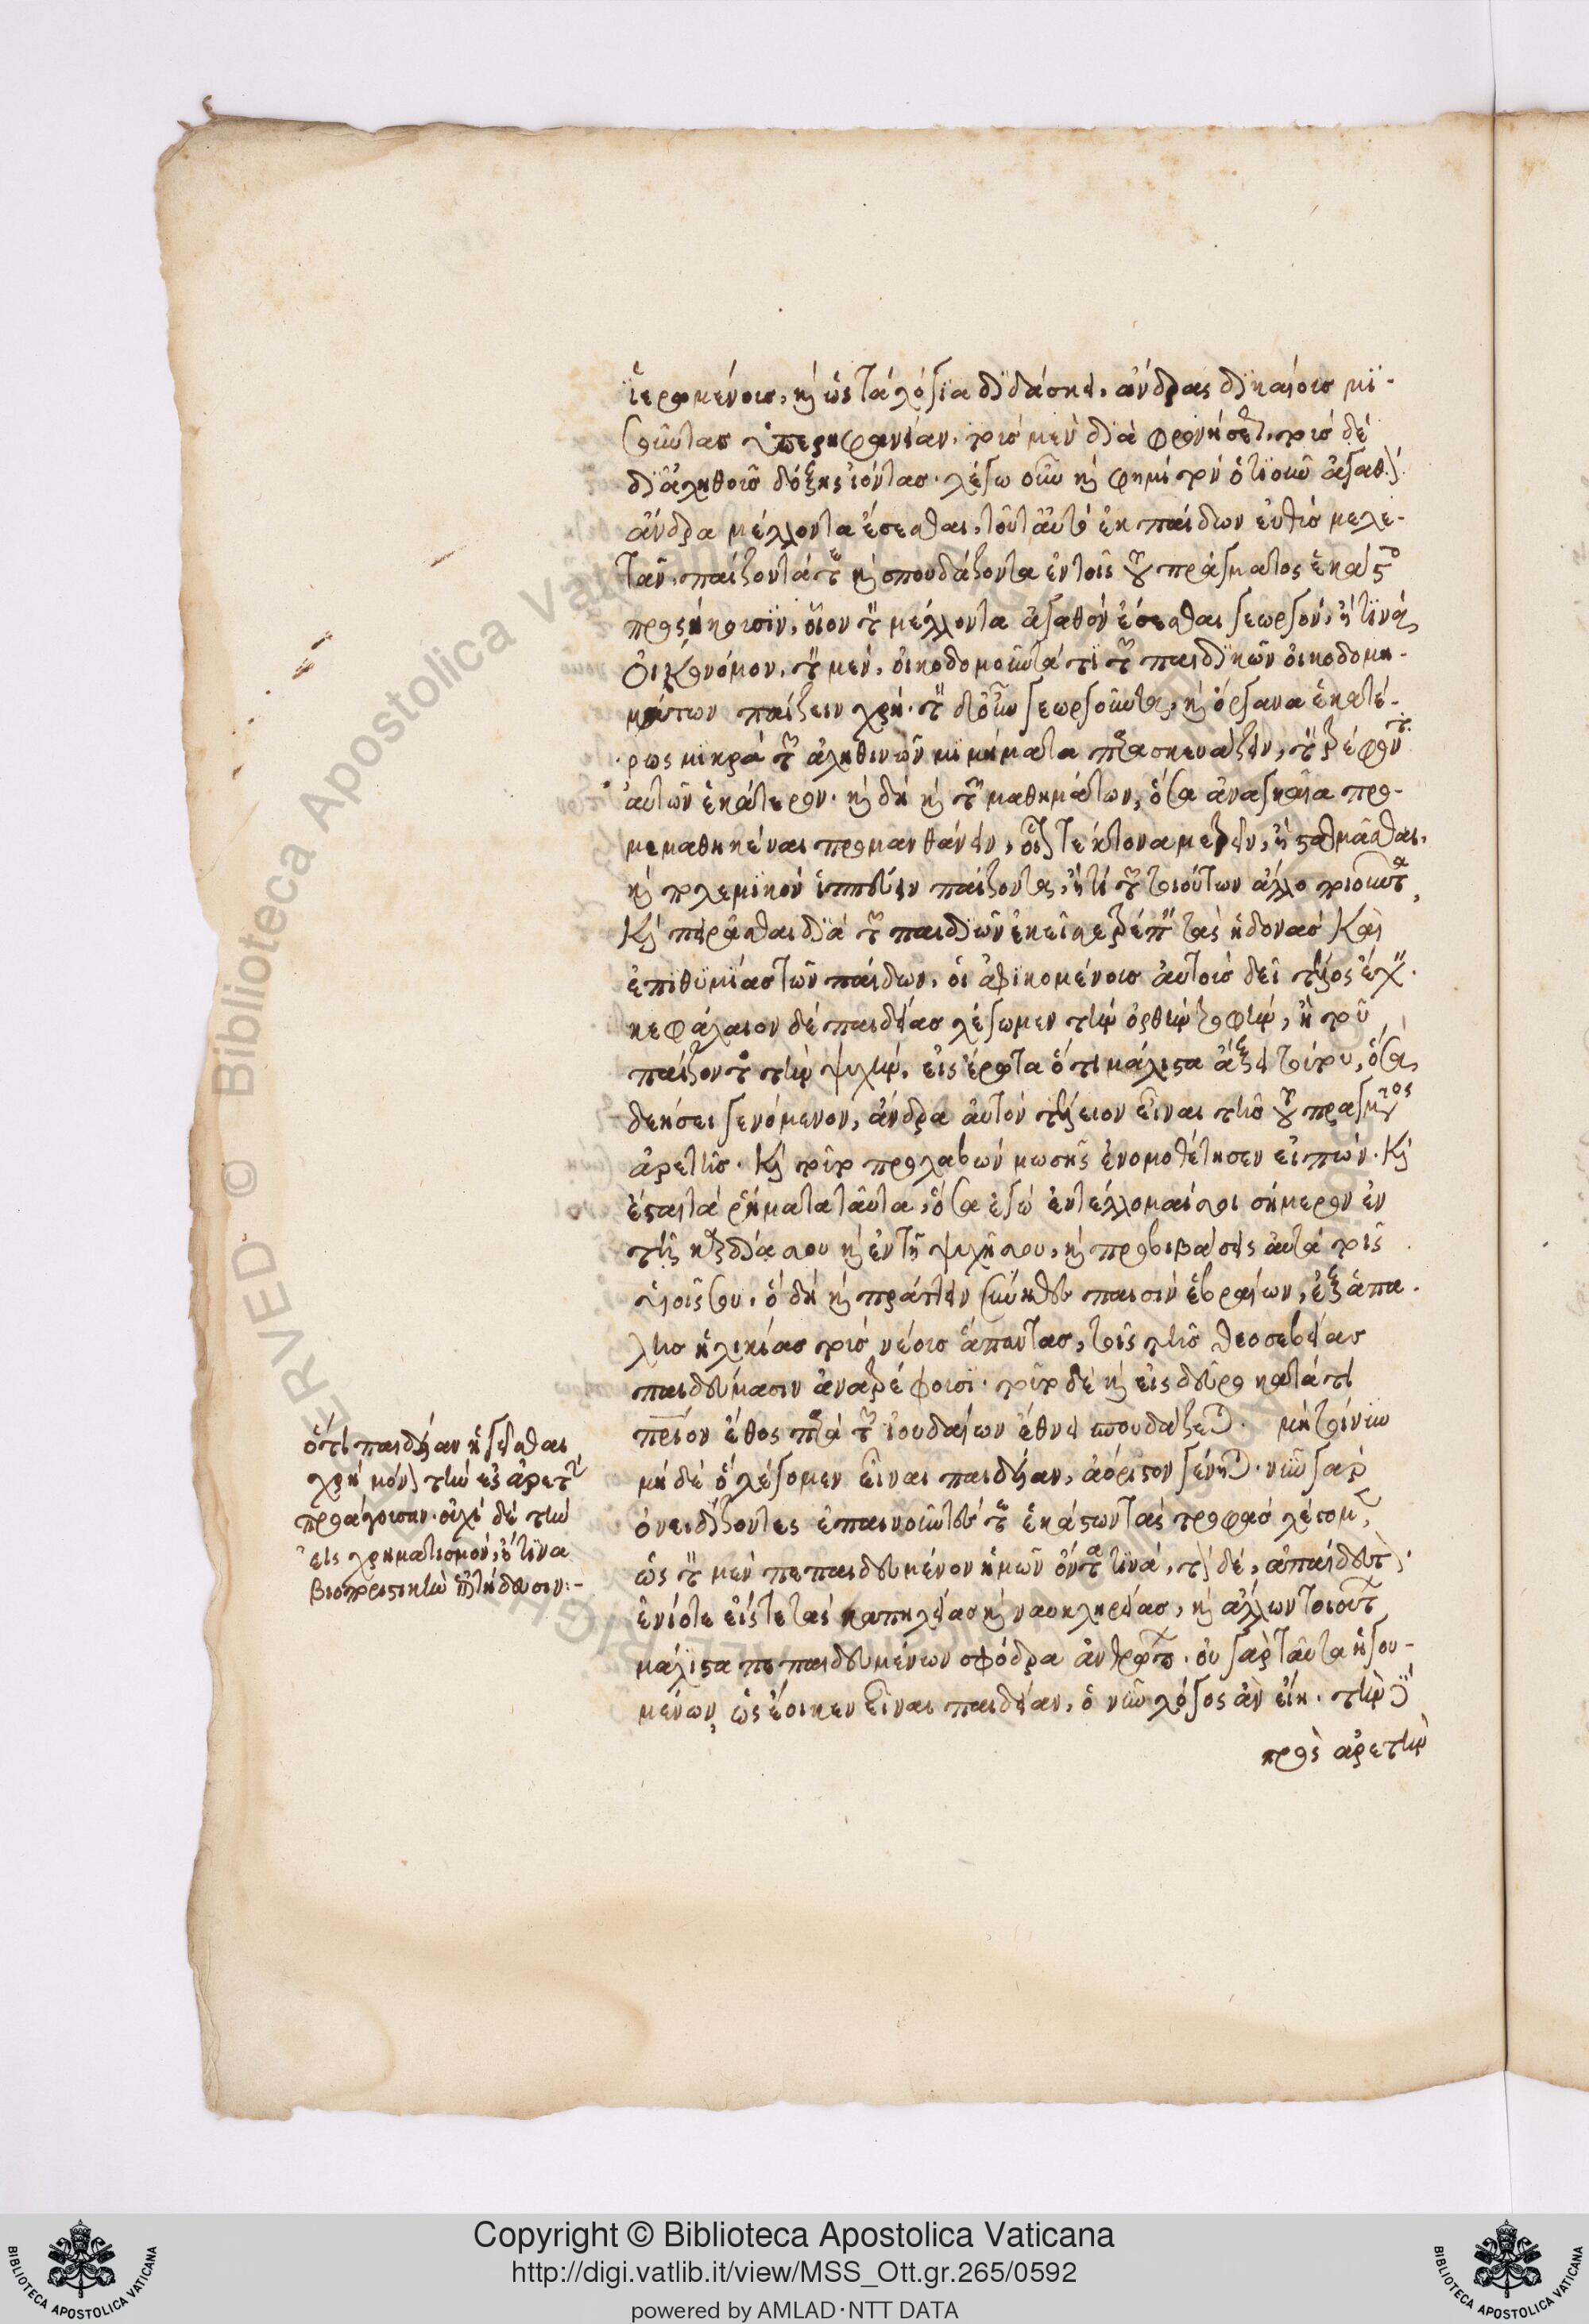 ἱερωμένοις, καὶ ὡς τὰ λόγϊα δϊδάσκει, ἄνδρας δϊκαίους μϊ-
σοῦντας ὑπερηφανείαν. τοὺς μὲν διὰ φρονήσεως, τοὺς δὲ
δϊ' ἀληθοῦς δόξης ἰόντας. λέγω οὖν καὶ φημὶ τὸν ὁτϊοῦν ἀγαθὸν
ἄνδρα μέλλοντα ἔσεσθαι, τοῦτ' αὐτὸ ἐκ παίδων εὐθὺς μελε-
τᾶν, παίζοντά τε καὶ σπουδάζοντα ἐν τοῖς τοῦ πράγματος ἑκάστοις
προσήκουσϊν, οἷον τὸν μέλλοντα ἀγαθὸν ἔσεσθαι γεωργόν, ἤ τϊνα
οἰκονόμον, τὸν μὲν, οἰκοδομοῦντά τϊ τῶν παιδϊκῶν οἰκοδομη-
μάτων παίζειν χρή. τὸν δ' οὖν γεωργοῦντα, καὶ ὄργανα ἑκατέ-
ρως μϊκρὰ τῶν ἀληθινῶν μϊμήματα παρασκευάζειν, τὸν τρέφοντα
αὐτῶν ἑκάτερον. καὶ δὴ καὶ τῶν μαθημάτων, ὅσα ἀναγκαῖα προ-
μεμαθηκέναι προμανθάνειν, οἷον τέκτονα μετρεῖν, ἢ σταθμᾶσθαι,
καὶ πολεμϊκὸν ἱππεύειν παίζοντα, ἤ τι τῶν τοιούτων ἄλλο ποιοῦντα,
καὶ πειρᾶσθαι δϊὰ τῶν παιδϊῶν ἐκεῖσε τρέπειν τὰς ἡδονὰς καὶ
ἐπιθυμίας τῶν παίδων, οἷ ἀφικομένους αὐτοὺς δεῖ τέλος ἔχειν.
κεφάλαιον δὲ παιδείας λέγωμεν τὴν ὀρθὴν τροφήν, ἣ τοῦ
παίζοντος τὴν ψυχήν, εἰς ἔρωτα ὅτι μάλιστα ἄξει τούτου, ὅσα
δεήσει γενόμενον, ἄνδρα αὐτὸν τέλειον εἶναι τῆς τοῦ πράγματος
ἀρετῆς. καὶ τοῦτο προλαβὼν μωσῆς ἐνομοθέτησεν εἰπών. καὶ
ἔσται τὰ ῥήματα ταῦτα, ὅσα ἐγὼ ἐντέλλομαί σοι σήμερον ἐν
τῇ καρδϊᾳ σου καὶ ἐν τῇ ψυχῇ σου, καὶ προβιβάσεις αὐτὰ τοῖς
υἱοῖς σου, ὃ δὴ καὶ πράττειν σύνηθες παισὶν ἑβραίων, ἐξ ἁπα-
λῆς ἡλικίας τοὺς νέους ἅπαντας, τοῖς τῆς θεοσεβείας
παιδεύμασιν ἀνατρέφουσϊ. τοῦτο δὲ καὶ εἰς δεῦρο κατά τι
πάτριον ἔθος παρὰ τῶν ἰουδαίων ἔθνει σπουδάζεται. μὴ τοίνυν
μηδὲ ὃ λέγομεν εἶναι παιδείαν, ἀόριστον γένηται. νῦν γὰρ
ὀνειδίζοντες ἐπαινοῦντές τε ἑκάστων τὰς τροφὰς λέγομεν,
ὡς τὸν μὲν πεπαιδευμένον ἡμῶν ὄντα τϊνά, τὸν δέ, ἀπαίδευτον.
ἐνίοτε εἴς τε τὰς καπηλείας καὶ ναυκληρείας, καὶ ἄλλων τοιούτων
μάλϊστα πεπαιδευμένων σφόδρα ἀνθρώπων. οὐ γὰρ ταῦτα ἡγου-
μένων, ὡς ἔοικεν εἶναι παιδείαν, ὁ νῦν λόγος ἂν εἴη. τὴν δὲ
πρὸς ἀρετὴν
ὅτι παιδείαν ἡγεῖσθαι
χρὴ μόνον τὴν ἐπ' ἀρετὴν
προάγουσαν. οὐχὶ δὲ τὴν
εἰς χρηματισμόν, ἤ τϊνα
βιοποριστικὴν ἐπιτήδευσιν:-